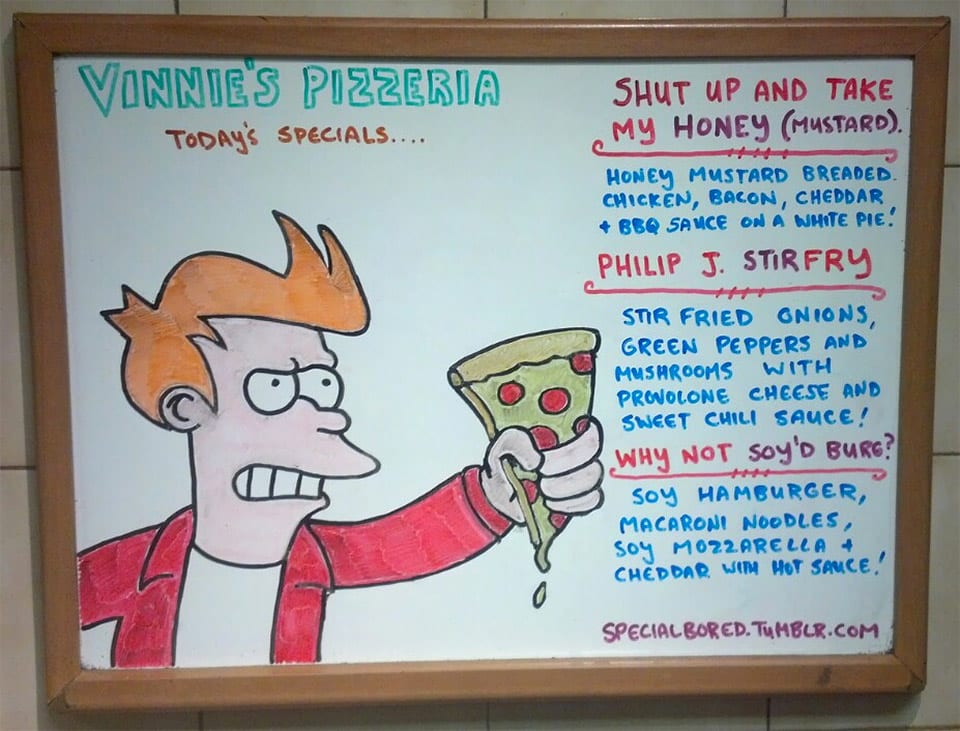 VINNIE'S PIZZERIA
TODAY'S SPECIALS....
SHUT UP AND TAKE
MY HONEY (MUSTARD).
HONEY MUSTARD BREADED
CHICKEN, BACON, CHEDDAR
+ BBQ SAUCE ON A WHITE PIE!
PHILIP J. STIRFRY
STIR FRIED ONIONS,
GREEN PEPPERS AND
MUSHROOMS WITH
PROVOLONE CHEESE AND
SWEET CHILI SAUCE!
WHY NOT SOY'D BURG?
SOY HAMBURGER,
MACARONI NOODLES,
SOY MOZZARELLA +
CHEDDAR WITH HOT SAUCE!
SPECIALBORED.TUMBLR.COM